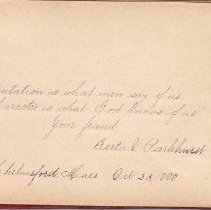 utation is what men say of us,
aracter is what God knows of us"
Your friend
Berta E. Parkhurst.
Chelmsford, Mass. Oct 23, 1890